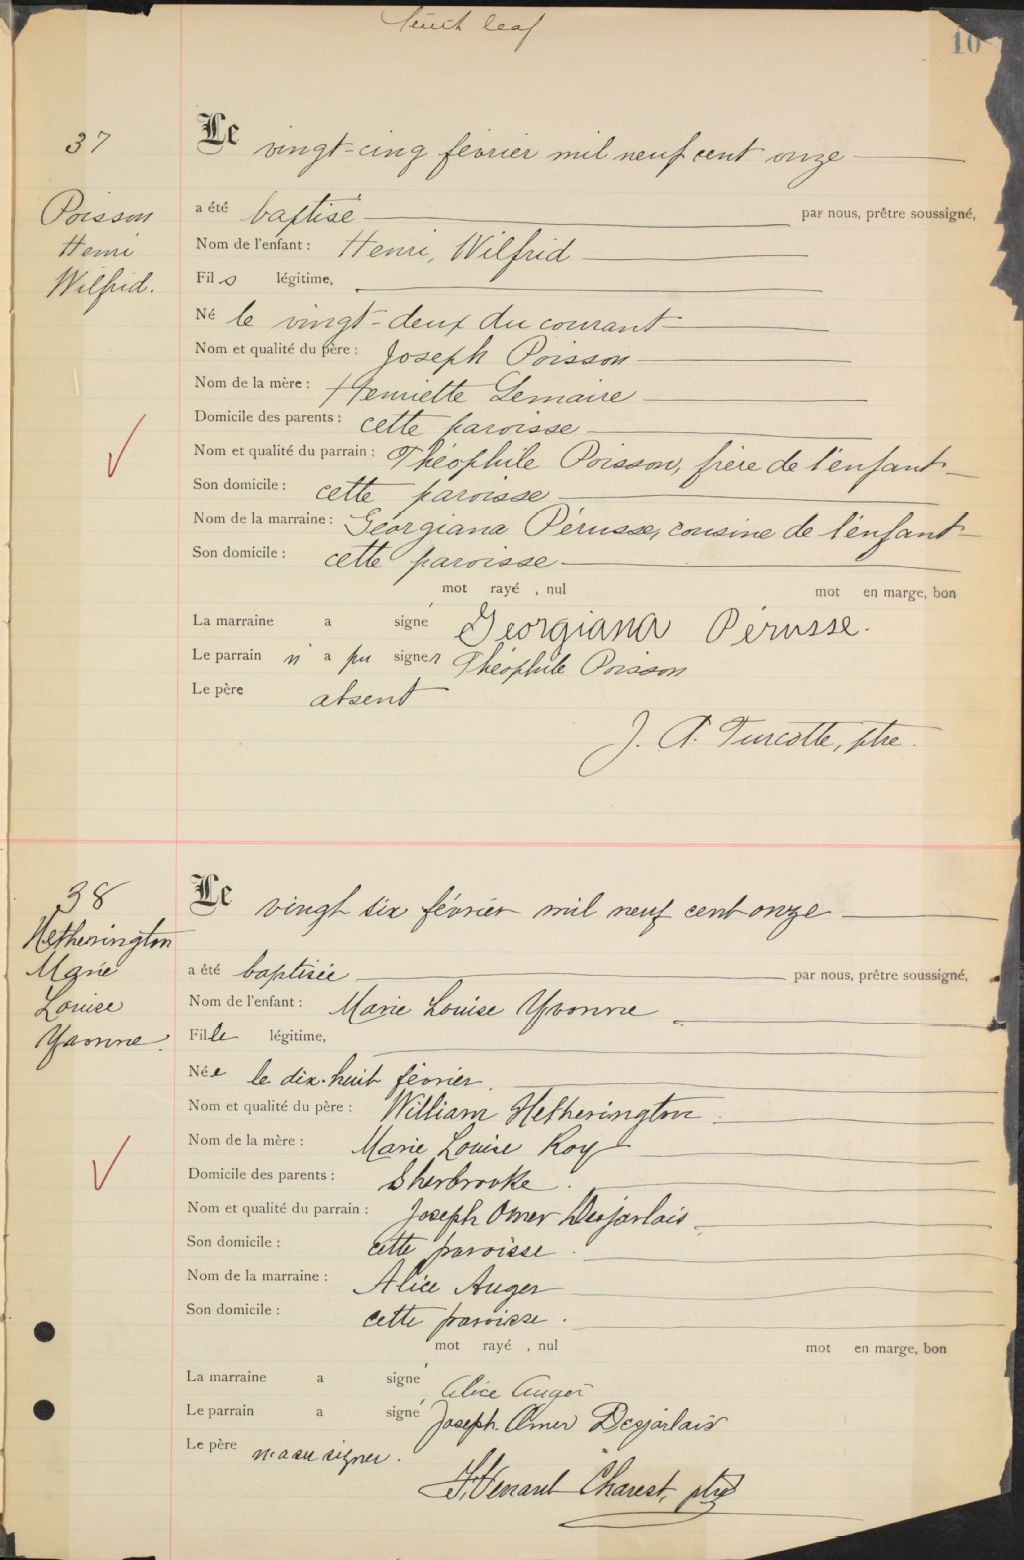 leaf
10
37
Le vingt-cinq février mil neuf cent onze
Poisson
Henri
Wilfrid.
a été baptisé par nous, prêtre soussigné,
Nom de l'enfant : Henri, Wilfrid
Fils légitime,
Né le vingt-deux du courant
Nom et qualité du père : Joseph Poisson
Nom de la mère : Henriette Lemaire
Domicile des parents : cette paroisse
Nom et qualité du parrain : Théophile Poisson, frère de l'enfant
Son domicile : cette paroisse
Nom de la marraine : Georgiana Pérusse, cousine de l'enfant
Son domicile : cette paroisse
mot rayé , nul mot en marge, bon
La marraine a signé Georgiana Pérusse.
Le parrain n'a pu signer Théophile Poisson
Le père absent
J. A. Turcotte, ptre.
38
Le vingt six février mil neuf cent onze
Hetherington
Marie
Louise
Yvonne.
a été baptisée par nous, prêtre soussigné,
Nom de l'enfant : Marie Louise Yvonne
Fille légitime,
Née le dix-huit février.
Nom et qualité du père : William Hetherington
Nom de la mère : Marie Louise Roy
Domicile des parents : Sherbrooke.
Nom et qualité du parrain : Joseph Omer Desjarlais
Son domicile : cette paroisse.
Nom de la marraine : Alice Auger
Son domicile : cette paroisse.
mot rayé , nul mot en marge, bon
La marraine a signé Alice Auger
Le parrain a signé Joseph. Omer Desjarlais
Le père n'a su signer.
Charest, ptre